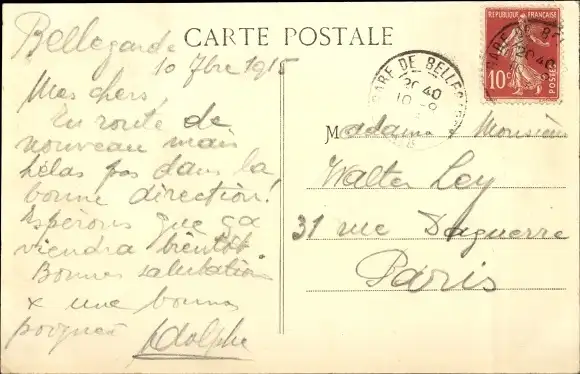 CARTE POSTALE
Bellegarde
10 7bre 1915
Mes chers,
En route de
nouveau mais
hélas pas dans la
bonne direction!
Espérons que ça
viendra bientôt
Bonnes salutations
x une bonne
poignée Adolphe
REPUBLIQUE FRANÇAISE
10c POSTES
GARE DE BELLEGARDE
20 40
10 - 9
Madame Monsieur
Walter Ley
31 rue Daguerre
Paris